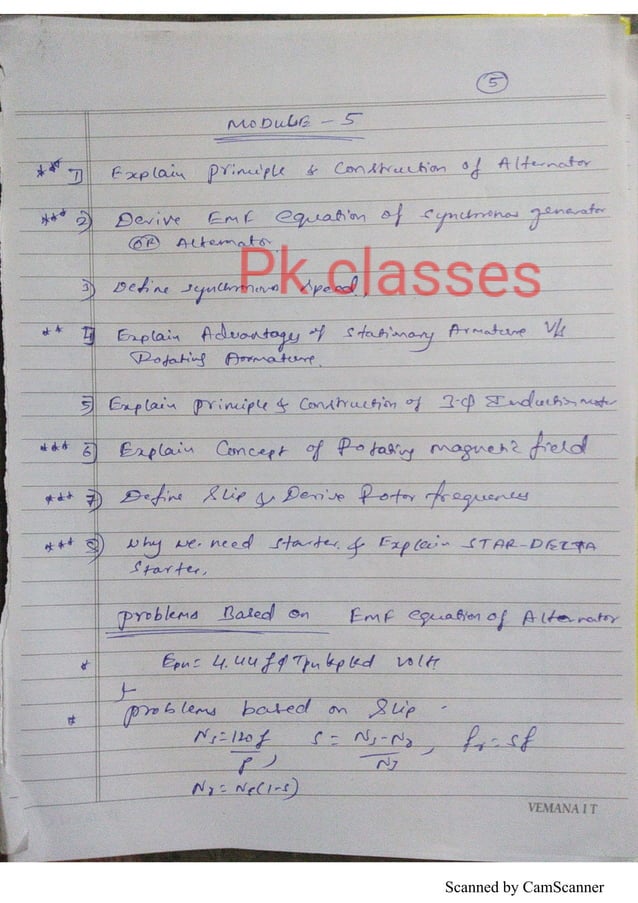 5
MODULE - 5
*** 1) Explain principle & Construction of Alternator
*** 2) Derive EMF equation of synchronous generator
OR Alternator
Pk classes
3) Define synchronous speed.
** 4) Explain Advantages of Stationary Armature V/s
Rotating Armature.
5) Explain principle & Construction of 3-φ Induction motor
*** 6) Explain Concept of Rotating magnetic field
*** 7) Define Slip & Derive Rotor frequency
*** 8) Why we need starter & Explain STAR-DELTA
Starter.
problems Based on EMF equation of Alternator
* Eph = 4.44 f φ Tph kp kd volts
* problems based on Slip -
Ns = 120f/P, S = Ns-Nr/Ns, fr = sf
Nr = Ns(1-s)
VEMANA I T
Scanned by CamScanner